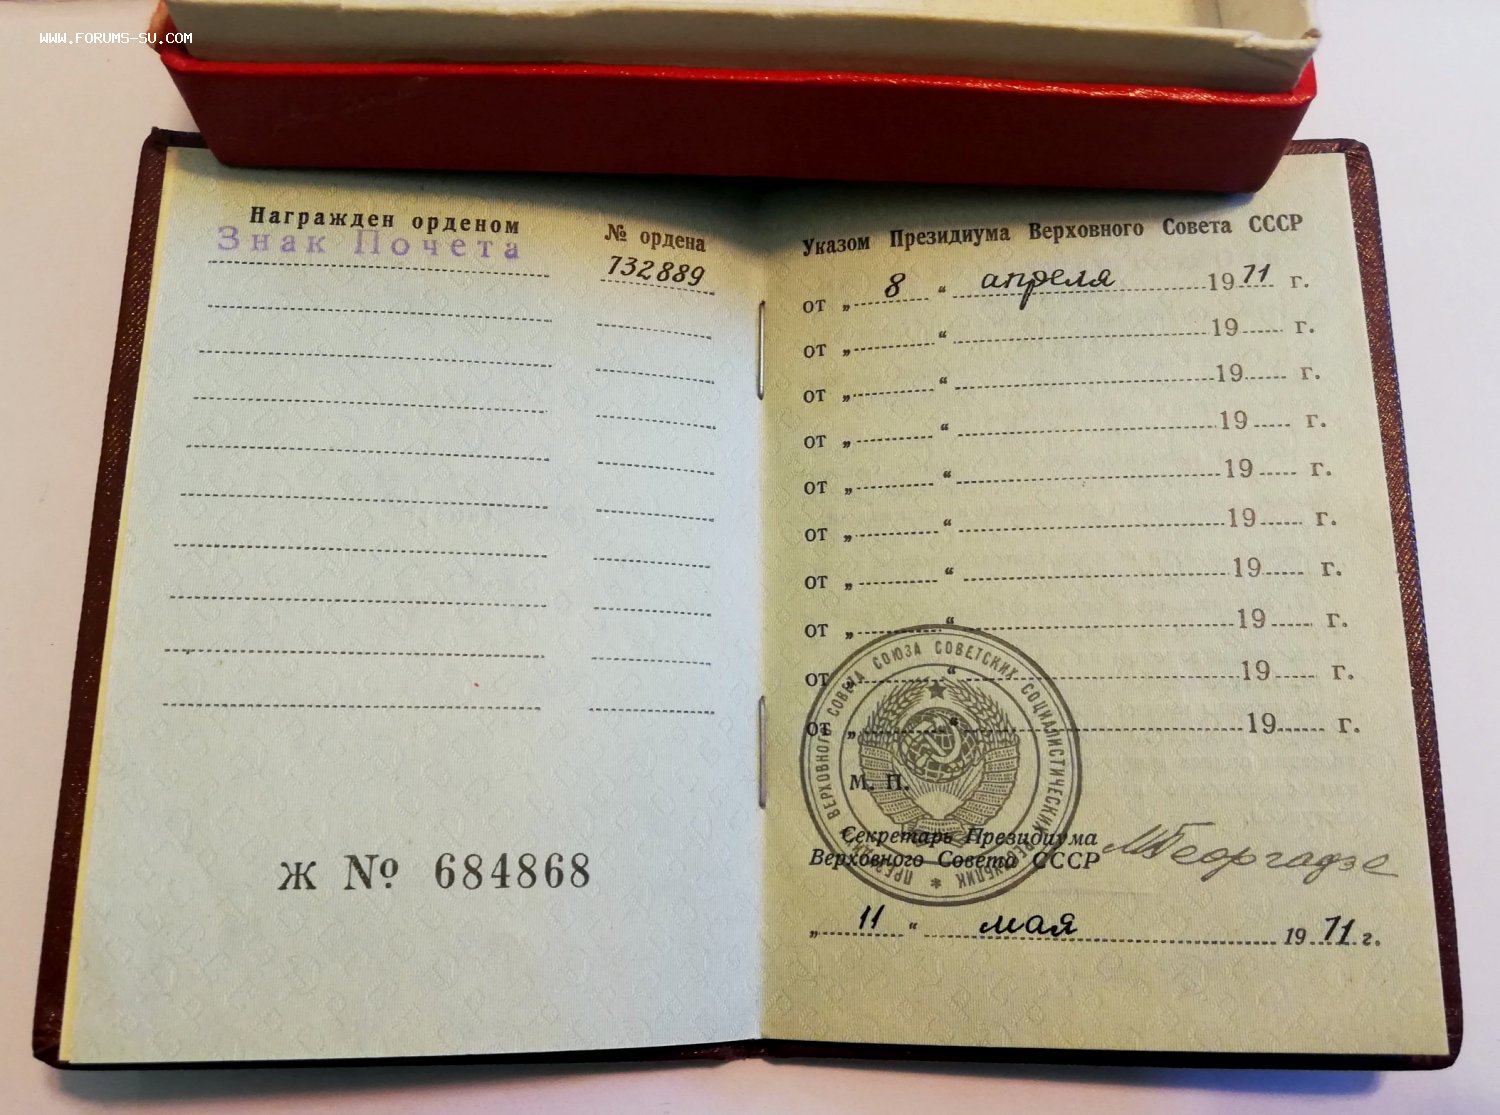 WWW.FORUMS-SU.COM
Награжден орденом
Знак Почета
№ ордена
732889
Ж № 684868
Указом Президиума Верховного Совета СССР
от „ 8 “ апреля 1971 г.
от „ “ 19 г.
от „ “ 19 г.
от „ “ 19 г.
от „ “ 19 г.
от „ “ 19 г.
от „ “ 19 г.
от „ “ 19 г.
от „ “ 19 г.
от „ “ 19 г.
ПРЕЗИДИУМ ВЕРХОВНОГО СОВЕТА СОЮЗА СОВЕТСКИХ СОЦИАЛИСТИЧЕСКИХ РЕСПУБЛИК
М. П.
Секретарь Президиума
Верховного Совета СССР
МГеоргадзе
„ 11 “ мая 1971 г.